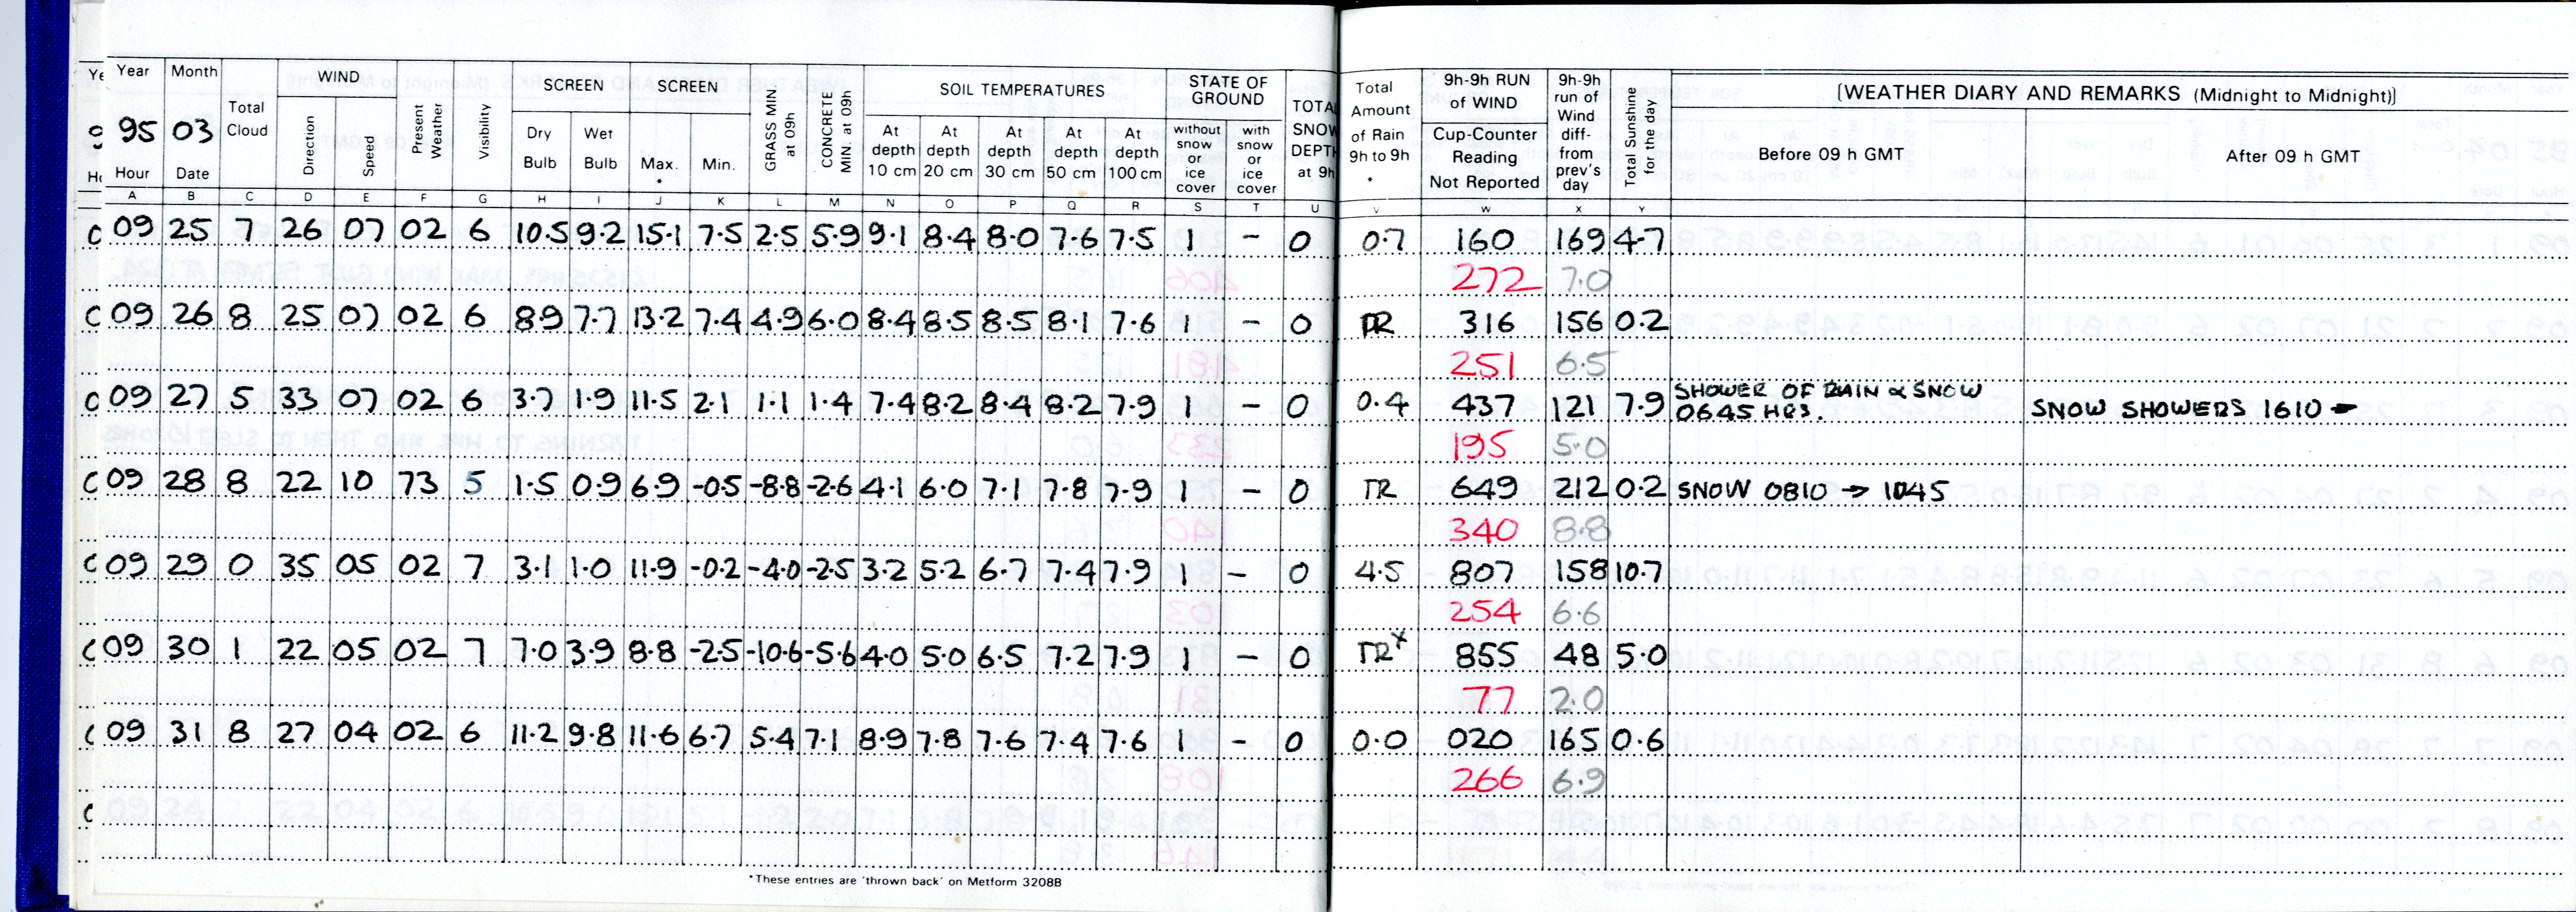 Year Month WIND SCREEN SCREEN SOIL TEMPERATURES STATE OF GROUND
Total Cloud Direction Speed Present Weather Visibility Dry Bulb Wet Bulb Max. * Min. GRASS MIN at 09h CONCRETE MIN. at 09h At depth 10 cm At depth 20 cm At depth 30 cm At depth 50 cm At depth 100 cm without snow or ice cover with snow or ice cover TOTAL SNOW DEPTH at 9h
95 03
Hour Date
Total Amount of Rain 9h to 9h * 9h-9h RUN of WIND Cup-Counter Reading Not Reported 9h-9h run of Wind diff- from prev's day Total Sunshine for the day [WEATHER DIARY AND REMARKS (Midnight to Midnight)]
Before 09 h GMT After 09 h GMT
A B C D E F G H I J K L M N O P Q R S T U V W X Y
09 25 7 26 07 02 6 10.5 9.2 15.1 7.5 2.5 5.9 9.1 8.4 8.0 7.6 7.5 1 – 0 0.7 160 169 4.7
272 7.0
09 26 8 25 07 02 6 8.9 7.7 13.2 7.4 4.9 6.0 8.4 8.5 8.5 8.1 7.6 1 – 0 TR 316 156 0.2
251 6.5
09 27 5 33 07 02 6 3.7 1.9 11.5 2.1 1.1 1.4 7.4 8.2 8.4 8.2 7.9 1 – 0 0.4 437 121 7.9 SHOWER OF RAIN & SNOW 0645 HRS. SNOW SHOWERS 1610 →
195 5.0
09 28 8 22 10 73 5 1.5 0.9 6.9 -0.5 -8.8 -2.6 4.1 6.0 7.1 7.8 7.9 1 – 0 TR 649 212 0.2 SNOW 0810 → 1045
340 8.8
09 29 0 35 05 02 7 3.1 1.0 11.9 -0.2 -4.0 -2.5 3.2 5.2 6.7 7.4 7.9 1 – 0 4.5 807 158 10.7
254 6.6
09 30 1 22 05 02 7 7.0 3.9 8.8 -2.5 -10.6 -5.6 4.0 5.0 6.5 7.2 7.9 1 – 0 TR x 855 48 5.0
77 2.0
09 31 8 27 04 02 6 11.2 9.8 11.6 6.7 5.4 7.1 8.9 7.8 7.6 7.4 7.6 1 – 0 0.0 020 165 0.6
266 6.9
*These entries are 'thrown back' on Metform 3208B